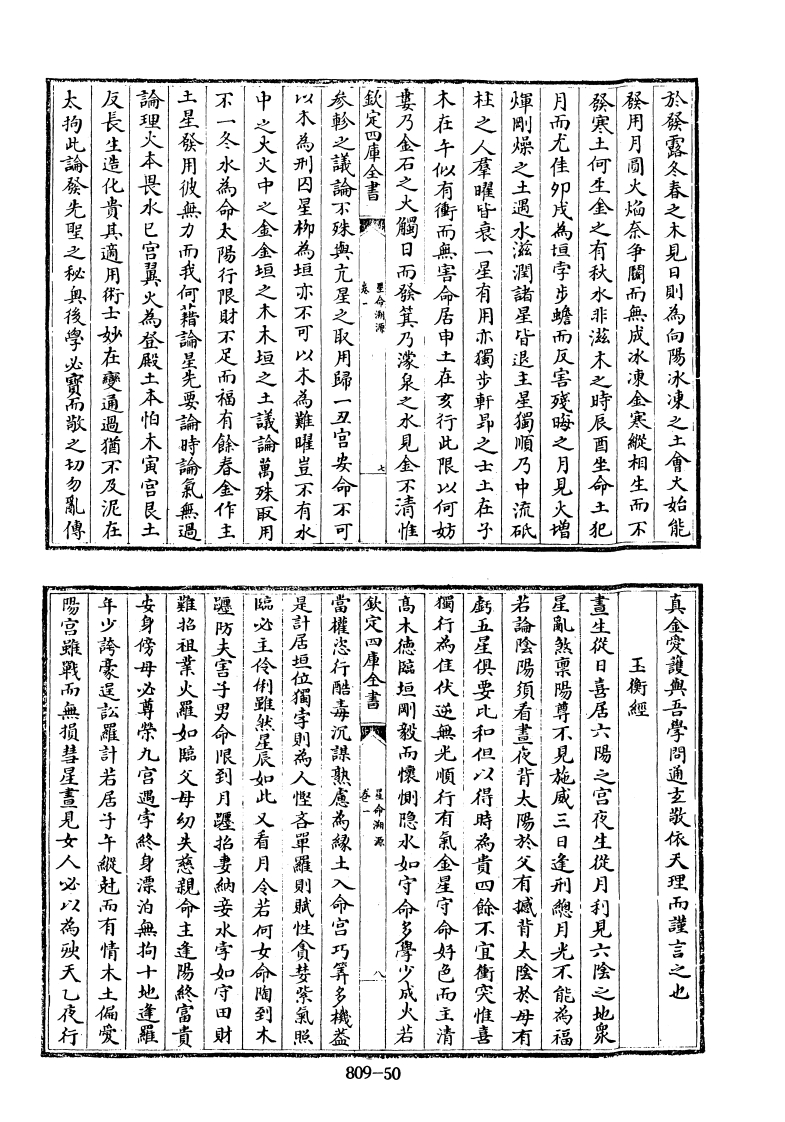 於發露冬春之木見日則為向陽冰凍之土會火始能
發用月圓火焰奈爭鬭而無成冰凍金寒縱相生而不
發寒土何生金之有秋水非滋木之時辰酉坐命土犯
月而尤佳卯戌為垣孛步蟾而反害殘晦之月見火増
煇剛燥之土遇水滋潤諸星皆退主星獨順乃中流砥
柱之人羣曜皆衰一星有用亦獨步軒昂之士土在子
木在午似有衝而無害命居申土在亥行此限以何妨
婁乃金石之火觸日而發箕乃濛泉之水見金不清惟
欽定四庫全書
星命溯源
卷一
七
參軫之議論不殊與亢星之取用歸一丑宮安命不可
以木為刑囚星柳為垣亦不可以木為難曜豈不有水
中之火火中之金金垣之木木垣之土議論萬殊取用
不一冬水為命太陽行限財不足而福有餘春金作主
土星發用彼無力而我何藉論星先要論時論氣無過
論理火本畏水巳宮翼火為登殿土本怕木寅宮艮土
反長生造化貴其適用術士妙在變通過猶不及泥在
太拘此論發先聖之秘奧後學必寶而敬之切勿亂傳
真金愛護與吾學問通玄敬依天理而謹言之也
玉衡經
晝生從日喜居六陽之宮夜生從月利見六陰之地衆
星亂煞稟陽尊不見施威三日逢刑總月光不能為福
若論陰陽須看晝夜背太陽於父有撼背太陰於母有
虧五星俱要比和但以得時為貴四餘不宜衝突惟喜
獨行為佳伏逆無光順行有氣金星守命好色而主清
高木德臨垣剛毅而懷惻隐水如守命多學少成火若
欽定四庫全書
星命溯源
卷一
八
當權恣行酷毒沉謀熟慮為緣土入命宮巧筭多機葢
是計居垣位獨孛則為人慳吝單羅則賦性貪婪紫氣照
臨必主伶俐雖然星辰如此又看月令若何女命陶到木
躔防夫害子男命限到月躔招妻納妾水孛如守田財
難招祖業火羅如臨父母幼失慈親命主逢陽終富貴
安身傍母必尊榮九宮遇孛終身漂泊無拘十地逢羅
年少誇豪逞訟羅計若居子午縱尅而有情木土偏愛
陽宮雖戰而無損彗星晝見女人必以為殃天乙夜行
809-50